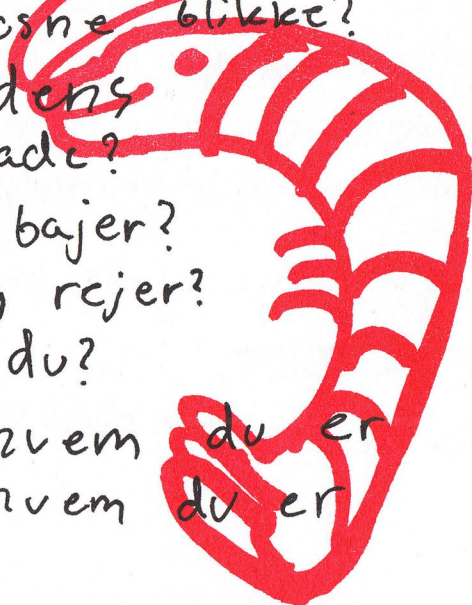 osne blikke?
dens
ade?
bajer?
rejer?
du?
hvem du er
hvem du er